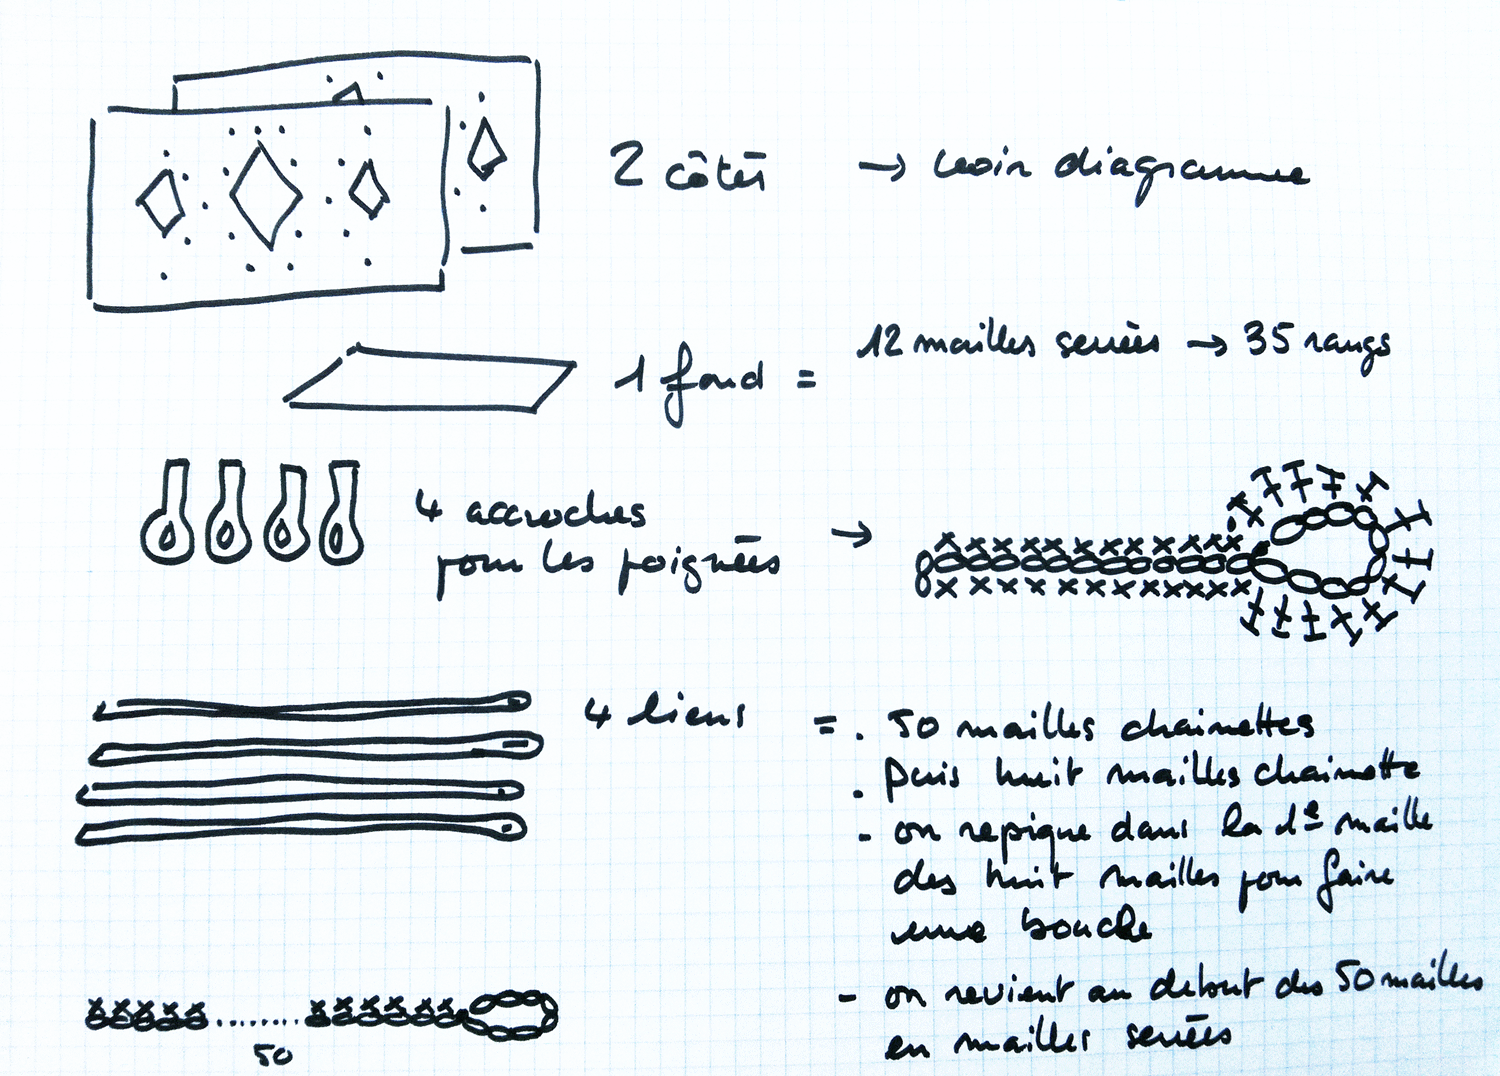 2 côtés → voir diagramme
1 fond = 12 mailles serrées → 35 rangs
4 accroches
pour les poignées →
4 liens = . 50 mailles chainettes
. Puis huit mailles chainette
- on repique dans la 1e maille
des huit mailles pour faire
une boucle
- on revient au debut des 50 mailles
en mailles serrées
50